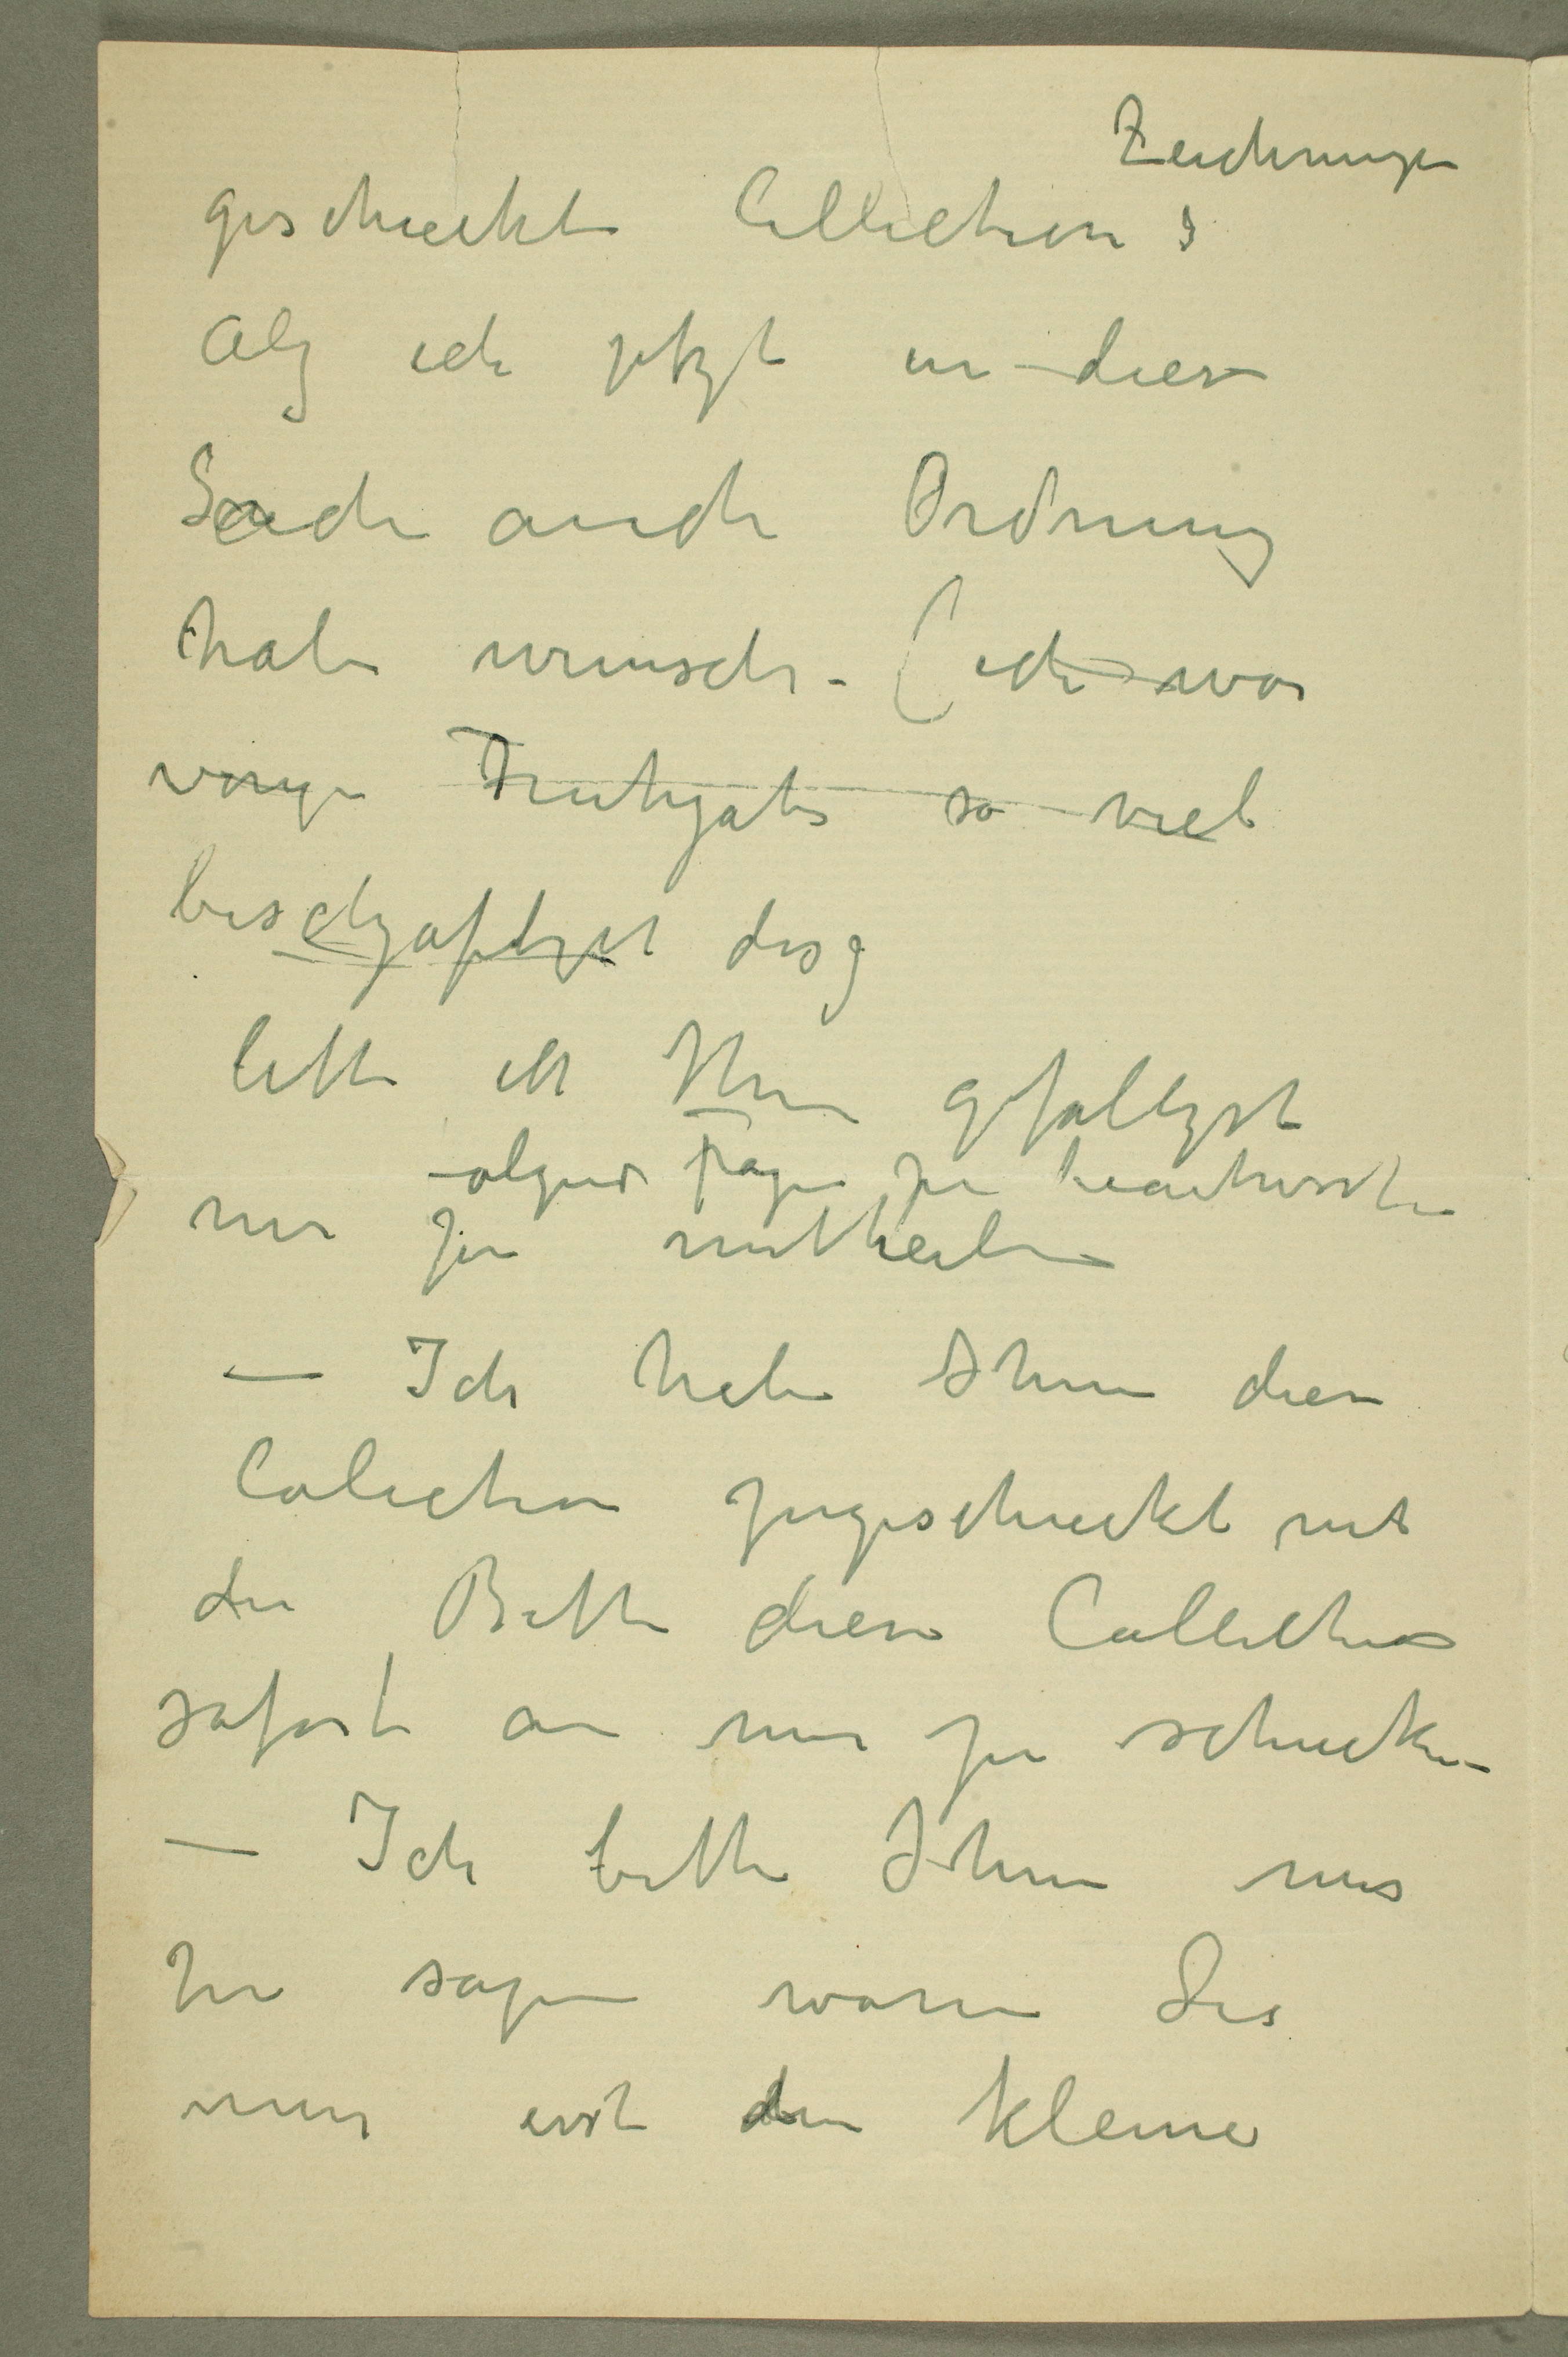 Zeichnungen
geschickte Collection s
Als ich jetzt in diese
Sache auch Ordnung
habe wünsche – (ich war
vorige Frühjahr so viel
beschjäftigt das
bitte ich Ihnen gefälligst
folgend Frage zu beantworten
mir zu mittheilen
— Ich habe Ihnen diese
Colection zugeschickt mit
die Bitte diese Collection
sofort an mir zu schicken
— Ich bitte Ihnen mir
zu sagen warum Sie
mir erst den kleine